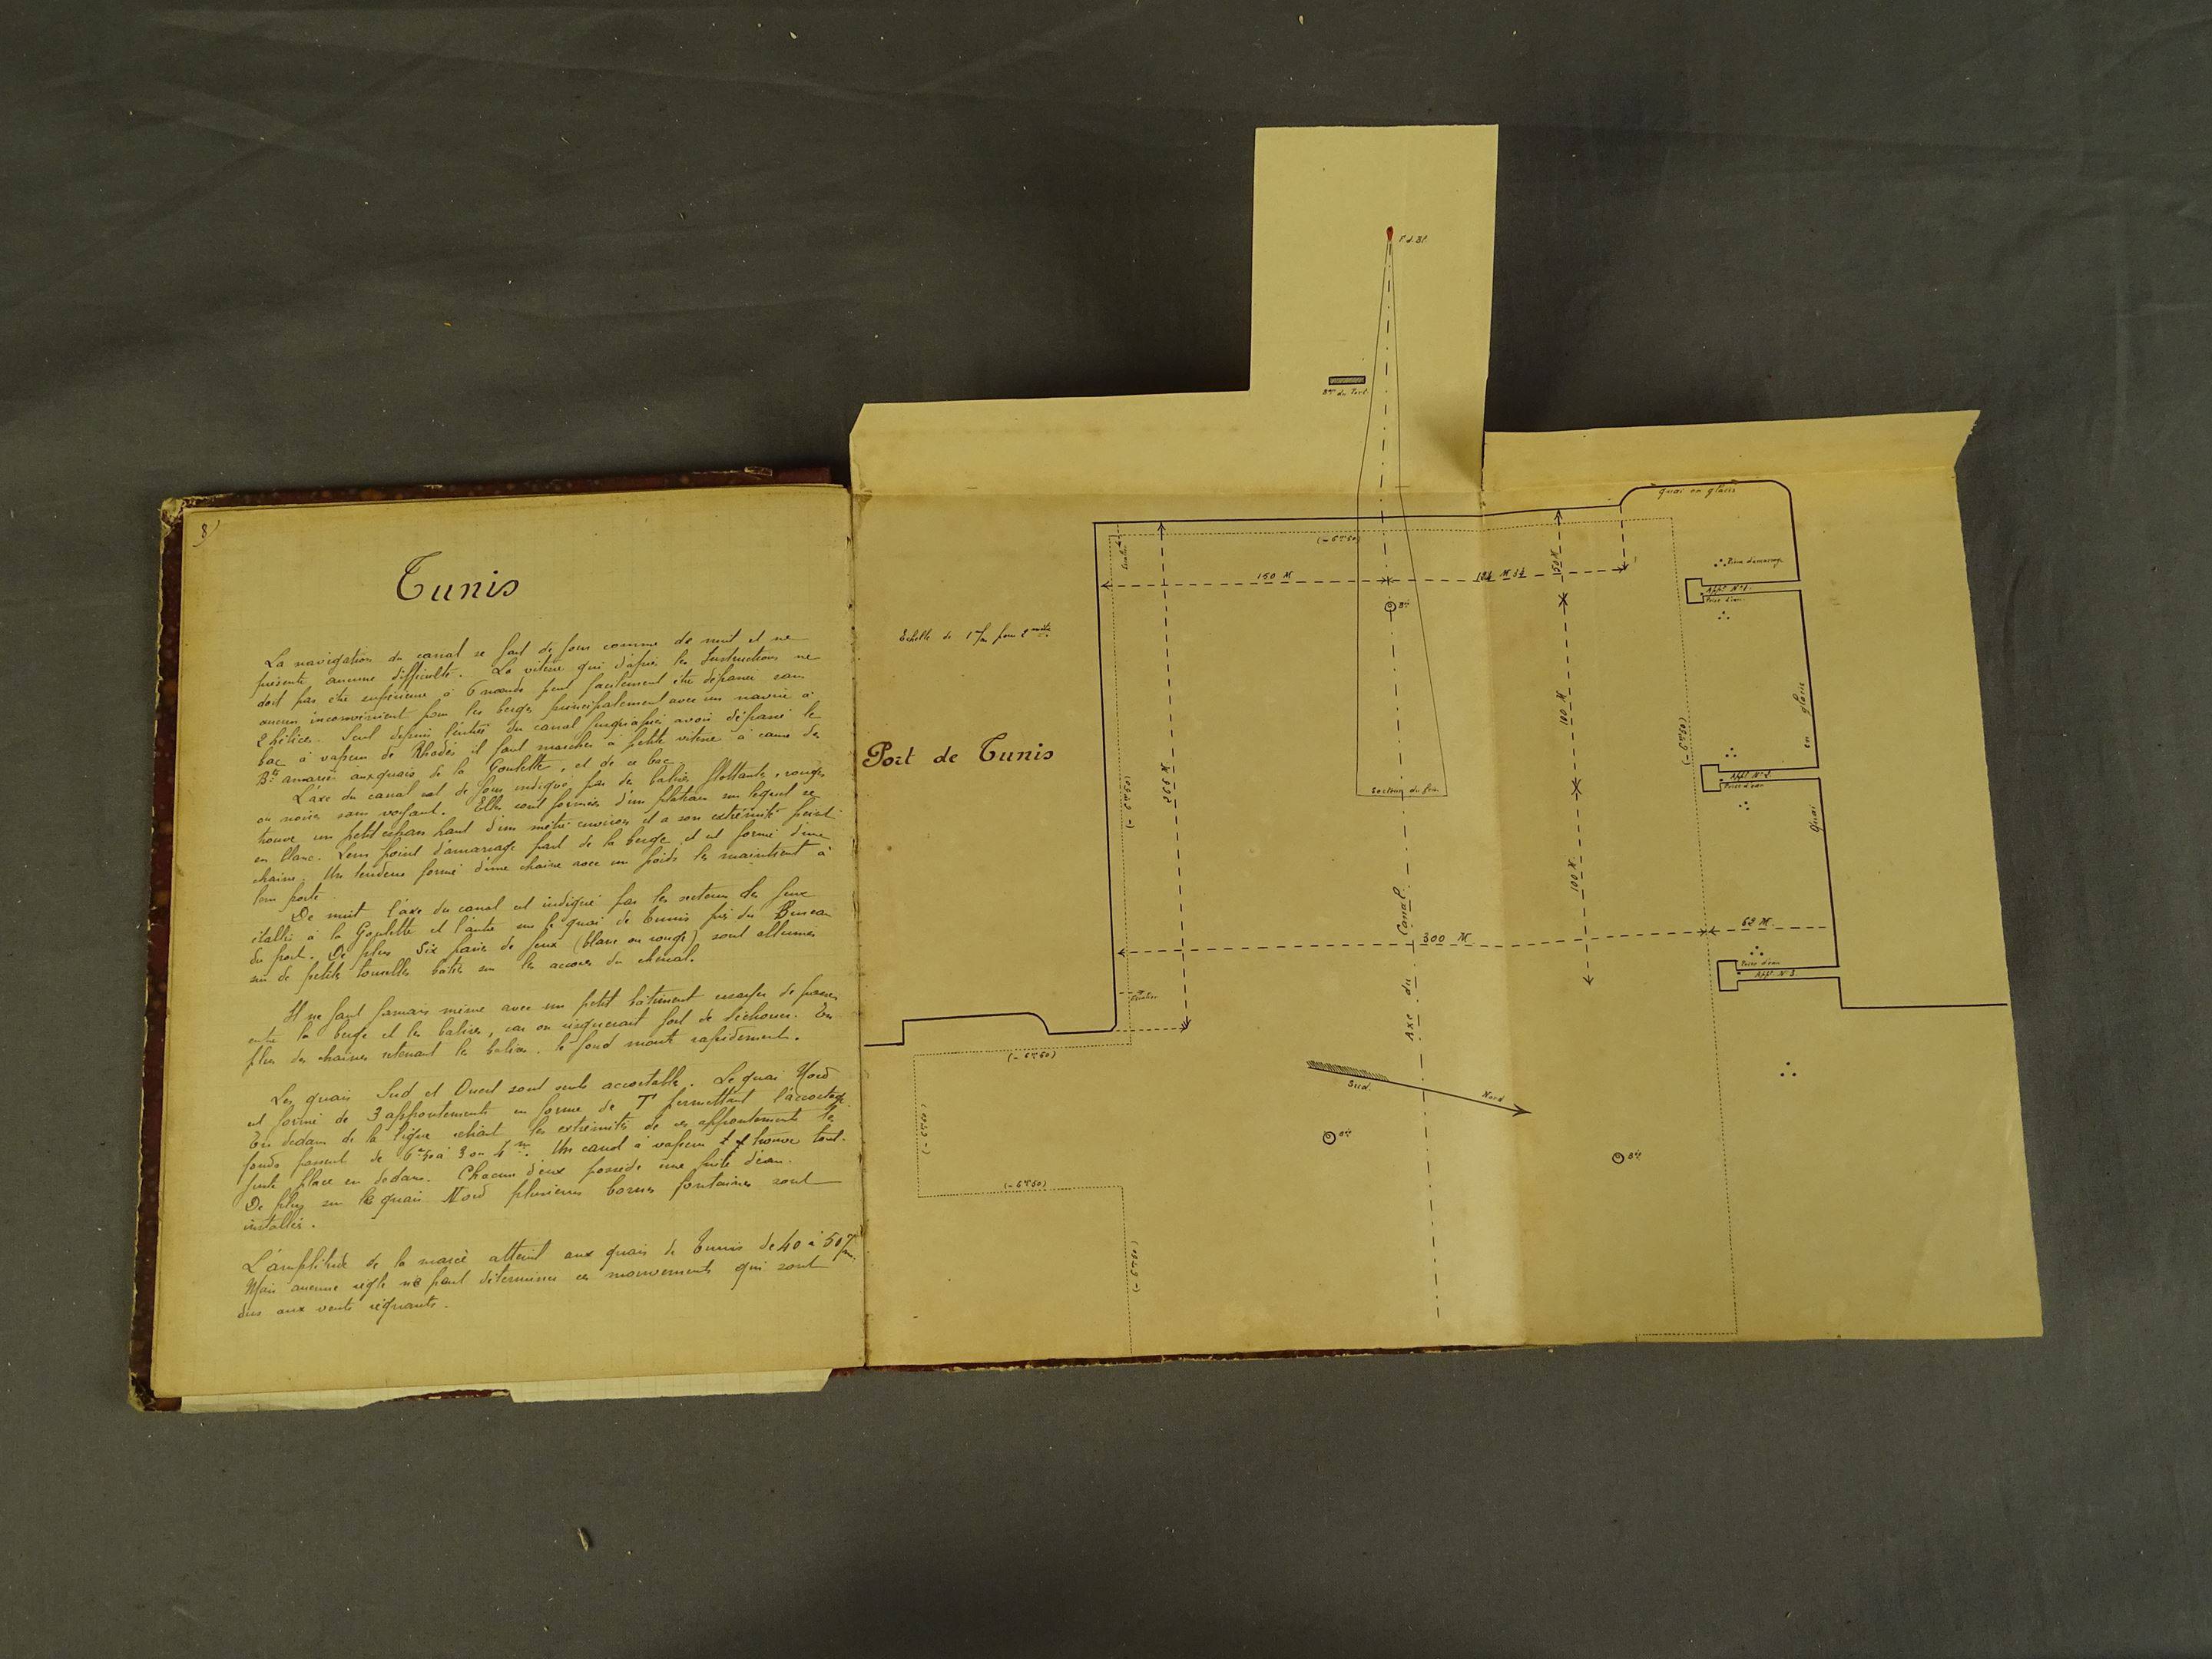 8)
Tunis
La navigation du canal se fait de jour comme de nuit et ne
présente aucune difficulté. La vitesse qui d'après les Instructions ne
doit pas être supérieure à 6 nœuds peut facilement être dépassée sans
aucun inconvénient pour les berges principalement avec un navire à
2 hélices. Seul depuis l'entrée du canal jusqu'après avoir dépassé le
bac à vapeur de Rhadès il faut marcher à petite vitesse à cause des
Bts amarrés aux quais de la Goulette, et de ce bac.
L'axe du canal est de jour indiqué par des balises flottantes, rouges
ou noires sans voyant. Elles sont formées d'un plateau sur lequel se
trouve un petit espars haut d'un mètre environ et a son extrémité peint
en blanc. Leur point d'amarrage part de la berge et est formé d'une
chaîne. Un tendeur formé d'une chaîne avec un poids les maintient à
leur poste.
De nuit l'axe du canal est indiqué par les secteurs des feux
établis à la Goulette et l'autre sur le quai de Tunis près du Bureau
du port. De plus six paires de feux (blanc ou rouge) sont allumés
sur de petites tourelles bâties sur les accores du chenal.
Il ne faut jamais même avec un petit bâtiment essayer de passer
entre la berge et les balises, car on risquerait fort de s'échouer. En
plus des chaînes retenant les balises, le fond monte rapidement.
Les quais Sud et Ouest sont seuls accostables. Le quai Nord
est formé de 3 appontements en forme de T permettant l'accostage.
En dedans de la ligne reliant les extrémités de ces appontements les
fonds passent de 6m50 à 3 ou 4m. Un canot à vapeur y trouve tout
juste place en dedans. Chacun d'eux possède une prise d'eau.
De plus sur le quai Nord plusieurs bornes fontaines sont
installées.
L'amplitude de la marée atteint aux quais de Tunis de 40 à 50 c/m.
Mais aucune règle ne peut déterminer ces mouvements qui sont
dus aux vents régnants.
Port de Tunis
Echelle de 1 m/m pour 2 mètres
F. d. Bl.
Bau du Port
quai en glacis
(-6m50)
Escalier
150 M
150 M
Bée
Appt No 1.
Prise d'eau
265 M
100 M
Quai en glacis
(-6m50)
(-6m50)
Appt No 2.
Prise d'eau
Secteur du feu
100 M
Axe du Canal
300 M
62 M.
Prise d'eau
Appt No 3.
Escalier
(-6m50)
Sud.
Nord
(-6m50)
Bée
Bée
(-6m50)
(-6m50)